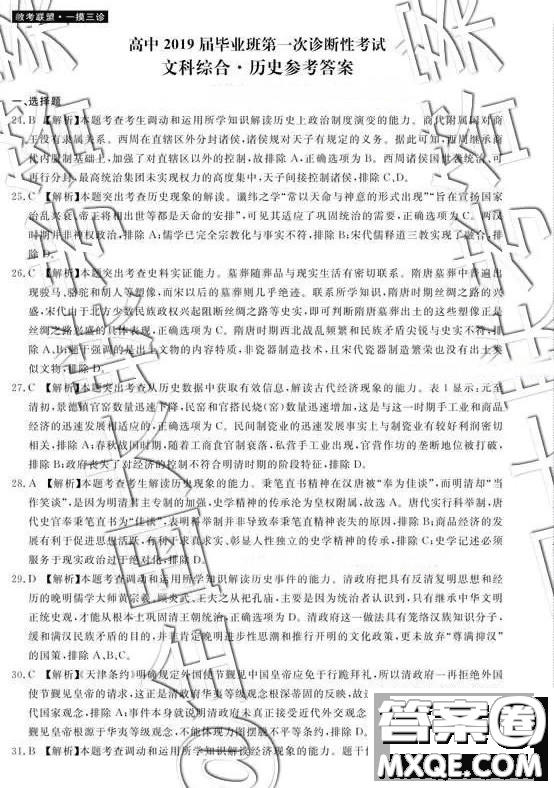 教考联盟·一摸三诊
高中 2019 届毕业班第一次诊断性考试
文科综合·历史参考答案
一、选择题
24. B 【解析】本题考查考生调动和运用所学知识解读历史上政治制度演变的能力。商代附属国对商
王没有隶属关系。西周在直辖区外分封诸侯,诸侯规对天子有规定的义务。据此可知,西周继承商
代内服制基础上,加强了对直辖区以外的控制,故排除 A,正确选项为 B。西周诸侯国世袭统治,可
再行分封,最高统治集团未实现权力的高度集中,天子间接控制诸侯,排除 C,D。
25. C 【解析】本题突出考查历史现象的解读。谶纬之学“常以天命与神意的形式出现”“旨在宣扬国家
治乱兴衰,帝王将相出世等都是天命的安排”,可见其适应了巩固统治的需要,正确选项为 C。两汉
时期并非神权政治,排除 A;儒学已完全宗教化与事实不符,排除 B;宋代儒释道三教实现了融合,排
除 D。
26. C 【解析】本题突出考查史料实证能力。墓葬随葬品与现实生活有密切联系。隋唐墓葬中普遍出
现骏马、骆驼和胡人等塑像,而宋以后的墓葬则几乎绝迹。联系所学知识,隋唐时期丝绸之路的兴
盛,宋代由于北方少数民族政权兴起阻断丝绸之路等史实,即可判断隋唐墓葬出土的这些塑像正是
丝绸之路兴盛的具体表现,正确选项为 C。隋唐时期西北战乱频繁和民族矛盾尖锐与史实不符,排
除 A,B;题干强调的是出土文物的内容特质,非瓷器制造技术,且宋代瓷器制造繁荣也没有出土类
似文物,排除 D。
27. C 【解析】本题突出考查从历史数据中获取有效信息,解读古代经济现象的能力。表 1 显示:元至
清初,景德镇官窑数量迅速下降,民窑和官搭民烧(窑)数量迅速增加,这是与这一时期手工业和商品
经济的迅速发展相适应的,正确选项为 C。民间制瓷业的迅速发展事实上与制瓷业有较好利润密切
相关,排除 A;春秋战国时期,随着工商食官制衰落,私营手工业出现,官营作坊的垄断地位被打破,
排除 B;政府丧失了对经济的控制不符合明清时期的阶段特征,排除 D。
28. A 【解析】本题考查考生解读历史现象的能力。秉笔直书精神在汉唐被“奉为佳谈”,而明清却“当
作笑谈”,是因为明清君主专制的加强,史学精神的传承沦为皇权附属,故选 A。唐代实行科举制,唐
代史官奉秉笔直书为“佳谈”,表明科举制并非导致奉秉笔直书精神丧失的原因,排除 B;商品经济的发
展有利于促进思想活跃,有利于求真求实、彰显人性独立的史学精神的传承,排除 C;史学记述必须
服务于现实政治过于绝对化,排除 D。
29. D 【解析】本题考查调动和运用所学知识解读历史事件的能力。清政府把具有反清复明思想和经
历的晚明儒学大师黄宗羲、顾炎武、王夫之从祀孔庙,主要是因为统治者认识到,只有继承中华文明
正统史观,才能从根本上巩固清王朝统治,正确选项为 D。清政府这一做法具有笼络汉族知识分子,
缓和满汉民族矛盾的目的,并非肯定晚明进步性思潮和推行开明的文化政策,更未放弃“尊满抑汉”
的国策,排除 A,B,C。
30. C 【解析】《天津条约》明确规定外国使节觐见中国皇帝应免于行跪拜礼,所以清政府一再拒绝外国
使节觐见皇帝的请求,这正是清政府华夷等级观念根深蒂固的反映,故
代国家观念,排除 A;事件本身就说明清政府未真正接受近代外交观念
觐见皇帝根源于华夷等级观念,不能体现力图摆脱不平等条约,排除 D。
31. B 【解析】本题考查调动和运用所学知识解读经济现象的能力。题干
答案圈
MXQE.COM